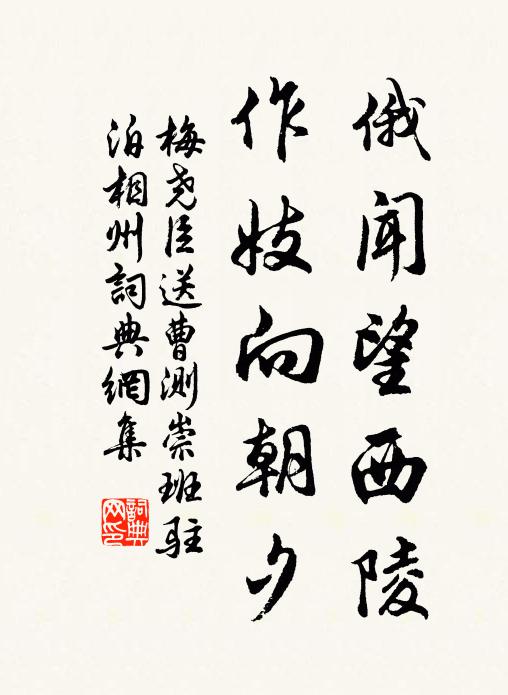 俄闻望西陵
作妓向朝夕
梅尧臣送曹测崇班驻
泊相州詞典網集
詞典
网印